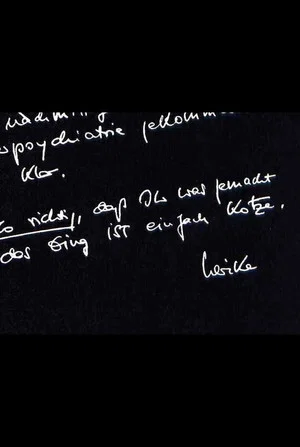 psychiatrie gekomm
klar.
so richtig, daß Ihr was gemacht
das Ding ist einfach Kotze.
Ulrike